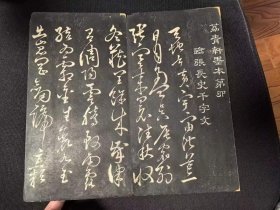 臨張長史千字文
天地玄黃宇宙洪荒
日月盈昃辰宿列
張寒來暑往秋收
冬藏閏餘成歲律
呂調陽雲騰致雨露
結為霜金生麗水玉
出崑岡劍號巨